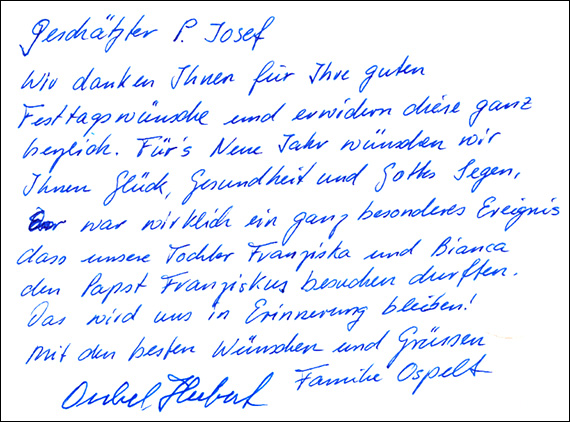 Geschätzter P. Josef
Wir danken Ihnen für Ihre guten
Festtagswünsche und erwidern diese ganz
herzlich. Für's Neue Jahr wünschen wir
Ihnen Glück, Gesundheit und Gottes Segen,
war wirklich ein ganz besonderes Ereignis
dass unsere Tochter Franziska und Bianca
den Papst Franziskus besuchen durften.
Das wird uns in Erinnerung bleiben!
Mit den besten Wünschen und Grüssen
Onkel Hubert Familie Ospelt